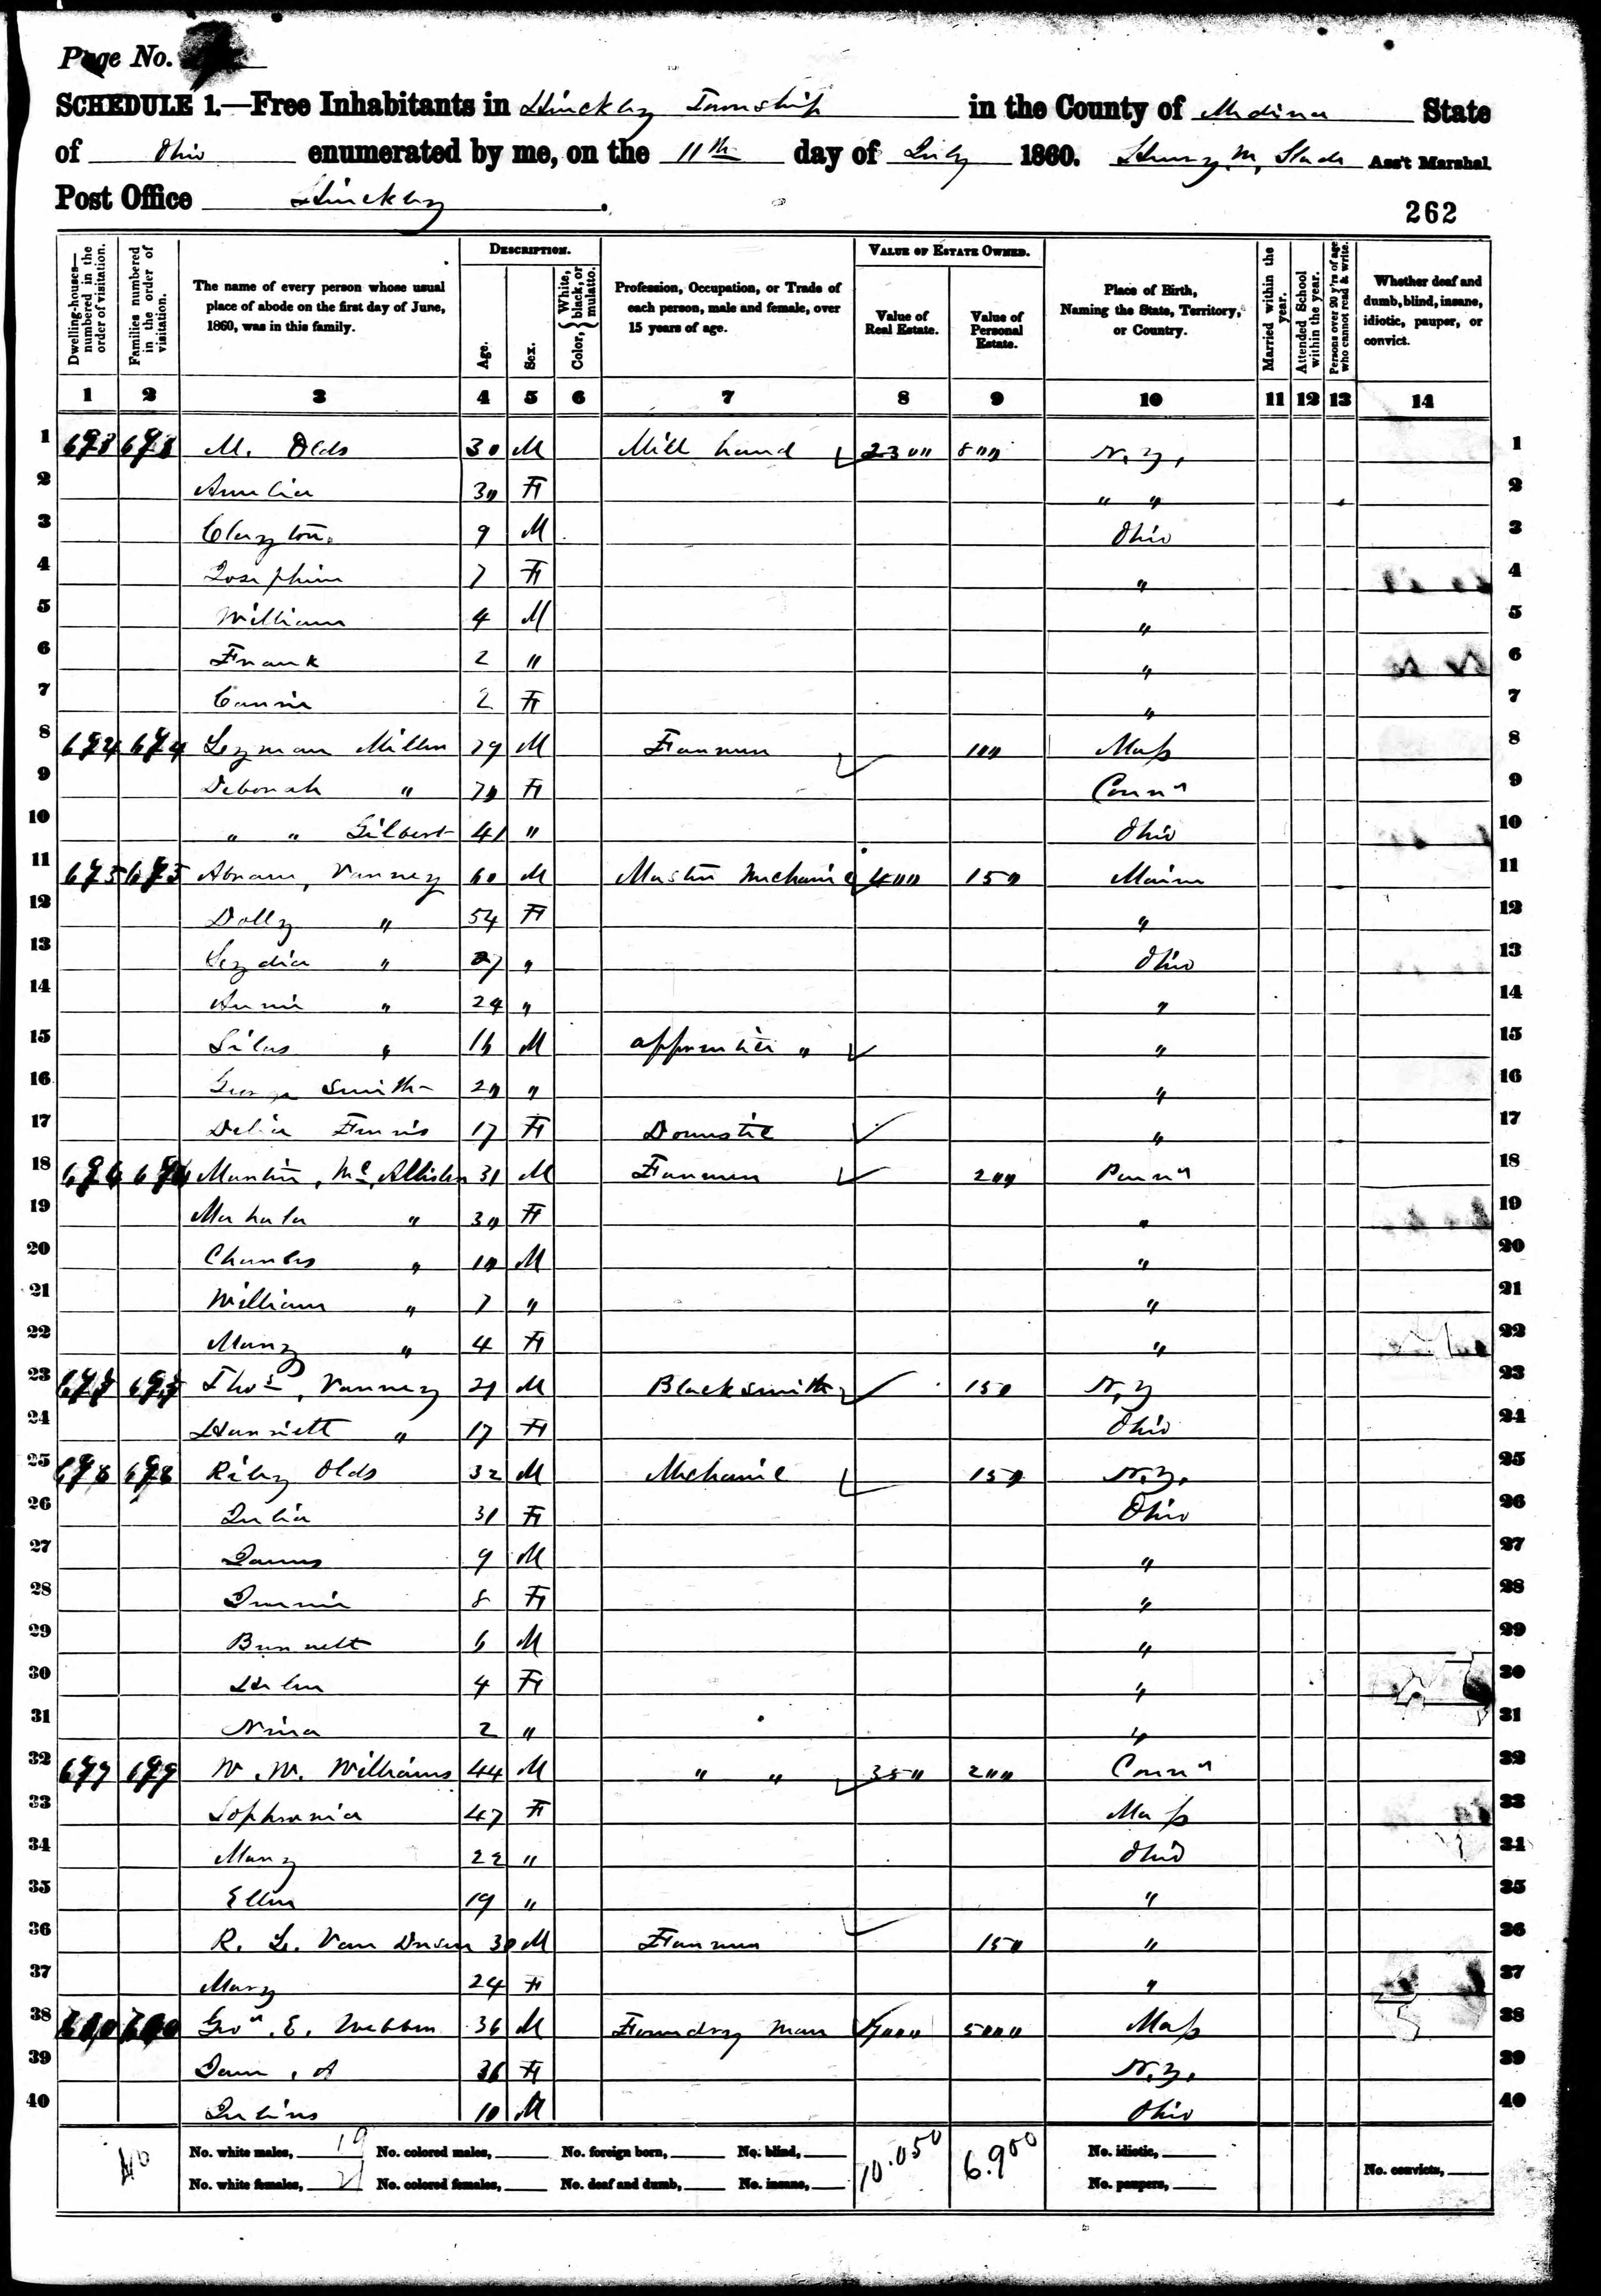 Page No.
SCHEDULE 1.—Free Inhabitants in Hinckley Township in the County of Medina State
of Ohio enumerated by me, on the 11th day of July 1860. Henry M. Slade Ass't Marshal.
Post Office Hinckley.
262
Dwelling-houses—numbered in the order of visitation.
Families numbered in the order of visitation.
The name of every person whose usual place of abode on the first day of June, 1860, was in this family.
DESCRIPTION.
Age.
Sex.
Color, { White, black, or mulatto.
Profession, Occupation, or Trade of each person, male and female, over 15 years of age.
VALUE OF ESTATE OWNED.
Value of Real Estate.
Value of Personal Estate.
Place of Birth, Naming the State, Territory, or Country.
Married within the year.
Attended School within the year.
Persons over 20 y'rs of age who cannot read & write.
Whether deaf and dumb, blind, insane, idiotic, pauper, or convict.
1 2 3 4 5 6 7 8 9 10 11 12 13 14
1 M. Olds 30 M Mill hand 2300 800 N.Y. 1
2 Amelia 30 F " " 2
3 Clayton 9 M Ohio 3
4 Josephine 7 F " 4
5 William 4 M " 5
6 Frank 2 " " 6
7 Cannie 2 F " 7
8 674 674 Lyman Miller 79 M Farmer 100 Mass 8
9 Deborah " 70 F Conn 9
10 " " Gilbert 41 " Ohio 10
11 675 675 Abram, Vanney 60 M Master Mechanic 400 150 Maine 11
12 Dolly " 54 F " 12
13 Lydia " 27 " Ohio 13
14 Annie " 24 " " 14
15 Silas " 16 M apprentice " " 15
16 George Smith 20 " " 16
17 Delia Ferris 17 F Domestic " 17
18 676 676 Martin, Mc Allister 31 M Farmer 200 Penn 18
19 Mahala " 30 F " 19
20 Charles " 10 M " 20
21 William " 7 " " 21
22 Mary " 4 F " 22
23 677 677 Thos, Vanney 21 M Blacksmith 150 N.Y 23
24 Harriett " 17 F Ohio 24
25 678 678 Riley Olds 32 M Mechanic 150 N.Y. 25
26 Julia 31 F Ohio 26
27 James 9 M " 27
28 Jennie 8 F " 28
29 Burnett 6 M " 29
30 Helen 4 F " 30
31 Nina 2 " " 31
32 679 679 W. W. Williams 44 M " " 350 200 Conn 32
33 Sophronia 47 F Mass 33
34 Mary 22 " Ohio 34
35 Ellen 19 " " 35
36 R. L. Van Dusen 30 M Farmer 150 " 36
37 Mary 24 F " 37
38 680 680 Geo. E. Webber 36 M Foundry man 7000 5000 Mass 38
39 Jane, A 36 F N.Y. 39
40 Julius 10 M Ohio 40
40 No. white males, 19 No. colored males, No. foreign born, No. blind, 10.050 6.900 No. idiotic,
No. white females, 21 No. colored females, No. deaf and dumb, No. insane, No. paupers, No. convicts,